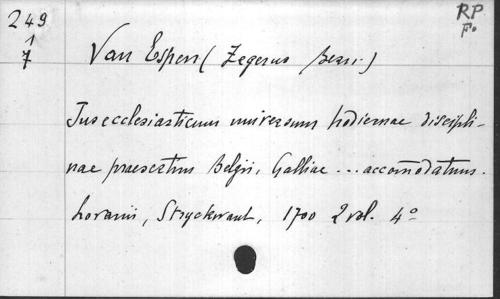 249
1
7
RP
F.
Van Espen (Zegerus Bern.)
Jus ecclesiasticum universum hodiernae discipli-
nae praesertim Belgii, Galliae ... accomodatum.
Lovanii, Stryckwant, 1700 2 vol. 4°